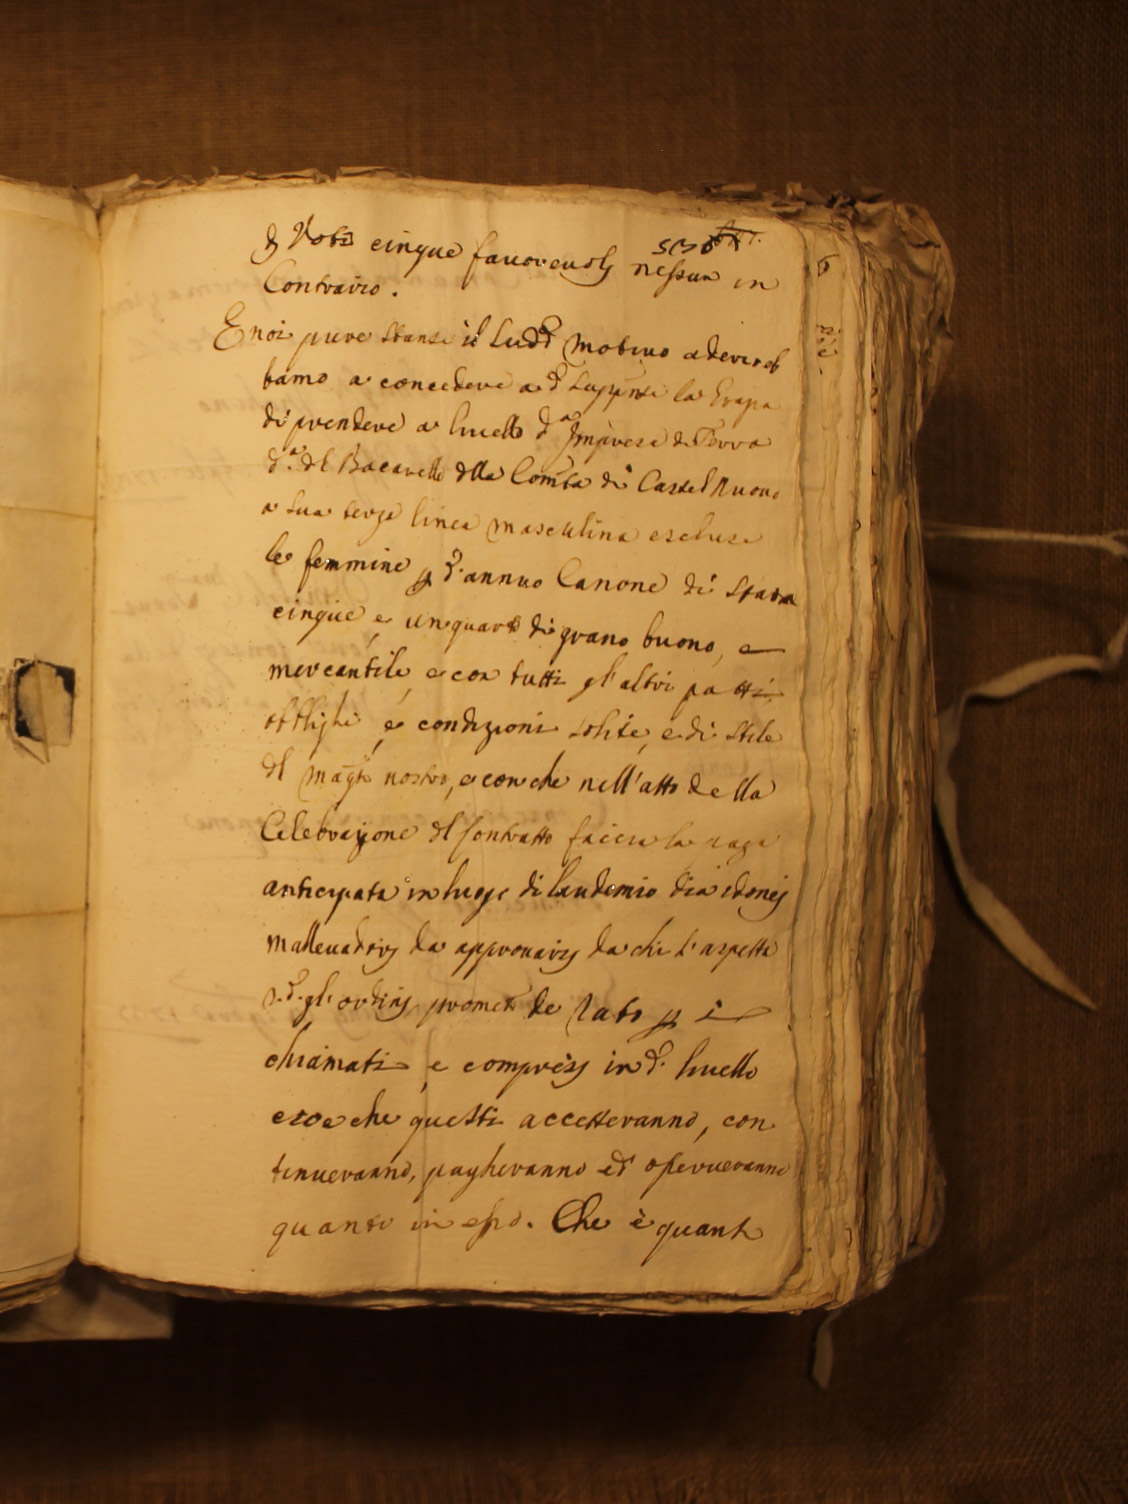 p Voti cinque favorevoli nessun in
Contrario.
E noi pure stante il sud.º motivo
bamo a concedere a d.º la Grazia
di prendere a livello d.ª Impresa di Terra
d.ª del Bacarello della Comtà di Castel Nuovo
a sua terza linea mascolina escluse
le femmine p d.º annuo Canone di Staia
cinque e un quarto di grano buono, e
mercantile, e con tutti gl'altri patti
obblighi, e condizioni solite, e di stile
del Magto nostro, e con che nell'atto della
Celebrazione del Contratto faccia la paga
anticipata in luogo di laudemio dia idonei
mallevadori da approvarsi da chi s'aspetta
s.d. gli ordini prometta de Rato p i
chiamati e compresi in d.º livello
cioe che questi accetteranno, con
tinueranno, pagheranno ed osserveranno
quanto in esso. Che è quant